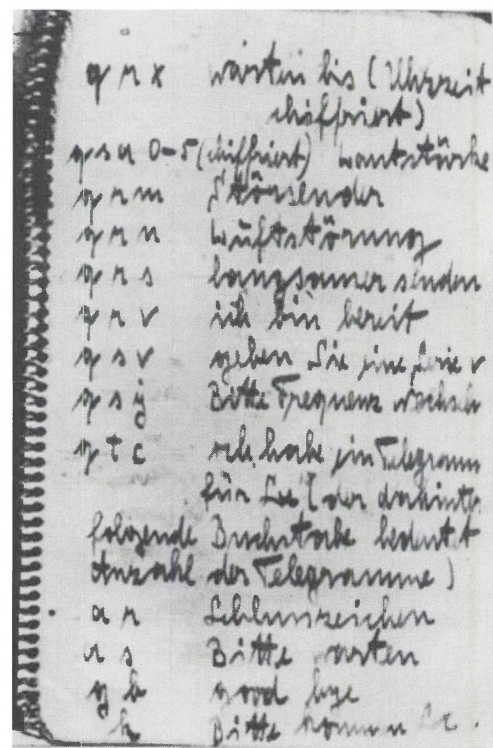 q r x warten bis (Uhrzeit
chiffriert)
q s a 0-5 (chiffriert) Lautstärke
q r m Störsender
q r n Luftstörung
q r s langsamer senden
q r v ich bin bereit
q s v geben Sie eine Serie v
q s y Bitte Frequenz wechseln
q t c ich habe ein Telegramm
für Sie (der dahinter
folgende Buchstabe bedeutet
Anzahl der Telegramme)
a r Schlusszeichen
a s Bitte warten
g b good bye
k Bitte kommen